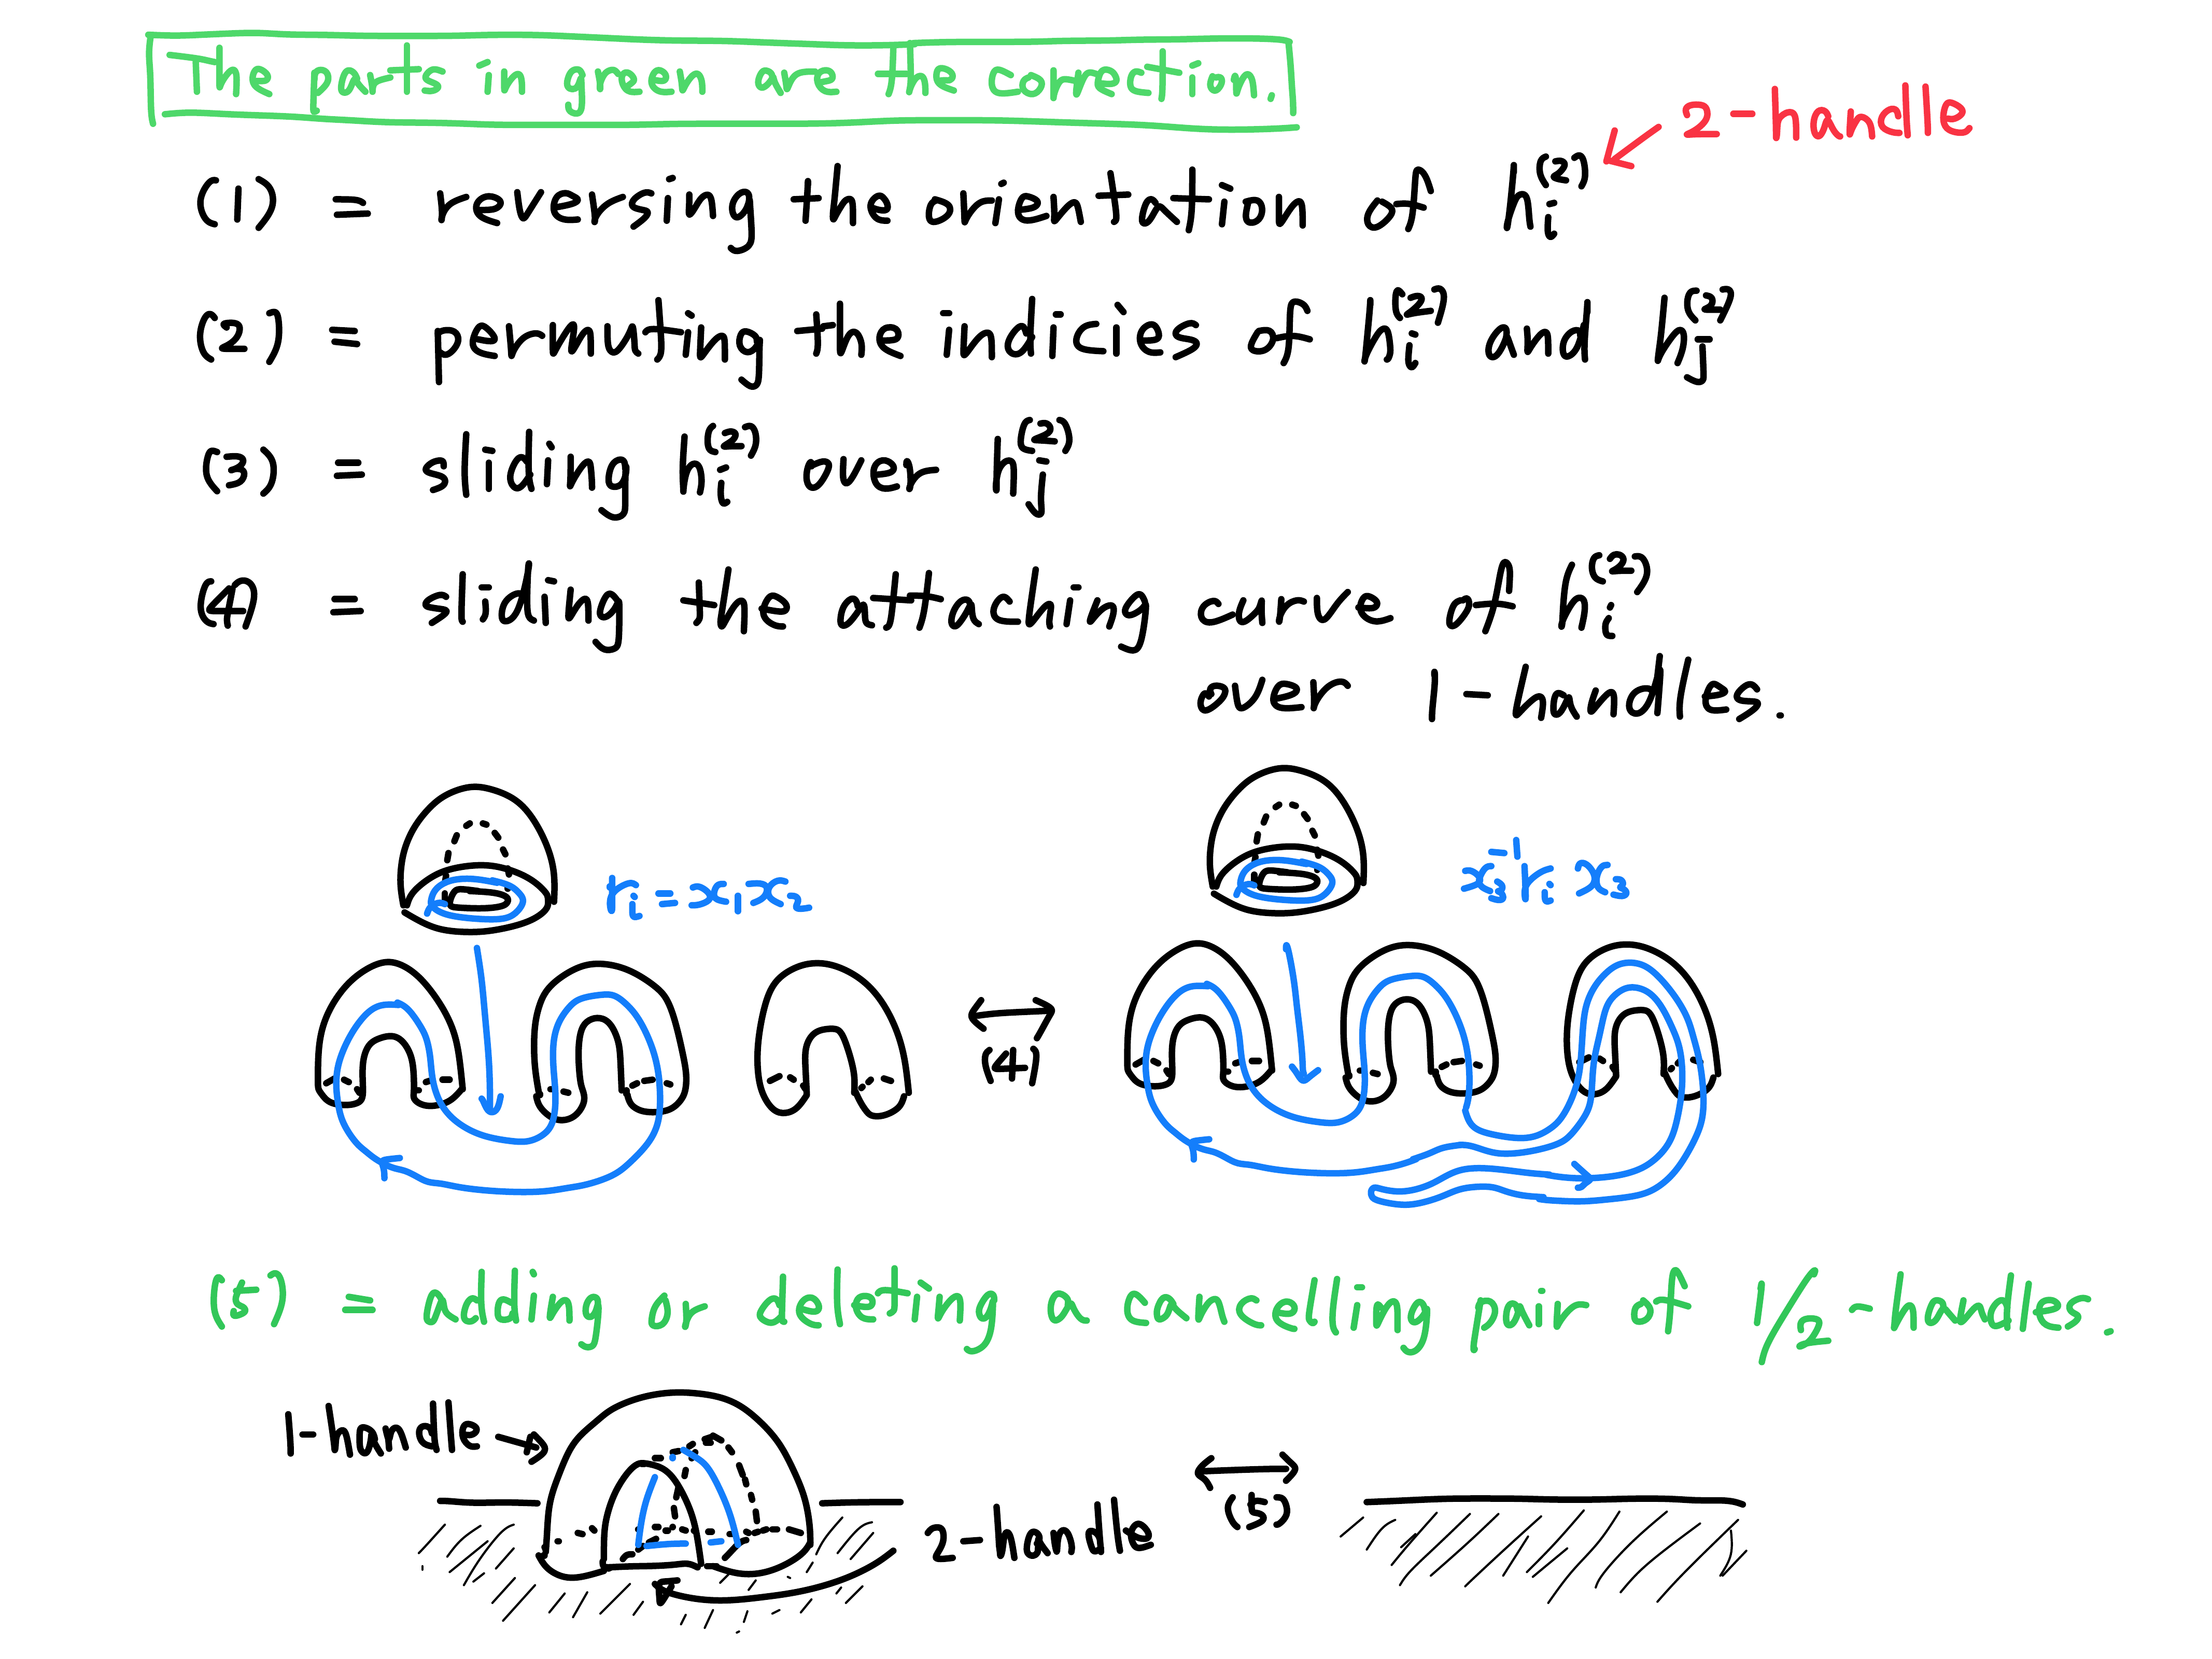 The parts in green are the correction.
2-handle
(1) = reversing the orientation of h_i^{(2)}
(2) = permuting the indicies of h_i^{(2)} and h_j^{(2)}
(3) = sliding h_i^{(2)} over h_j^{(2)}
(4) = sliding the attaching curve of h_i^{(2)}
over 1-handles.
r_i = x_1 x_2
x_3^{-1} r_i x_3
(4)
(5) = adding or deleting a cancelling pair of 1/2-handles.
1-handle
2-handle
(5)